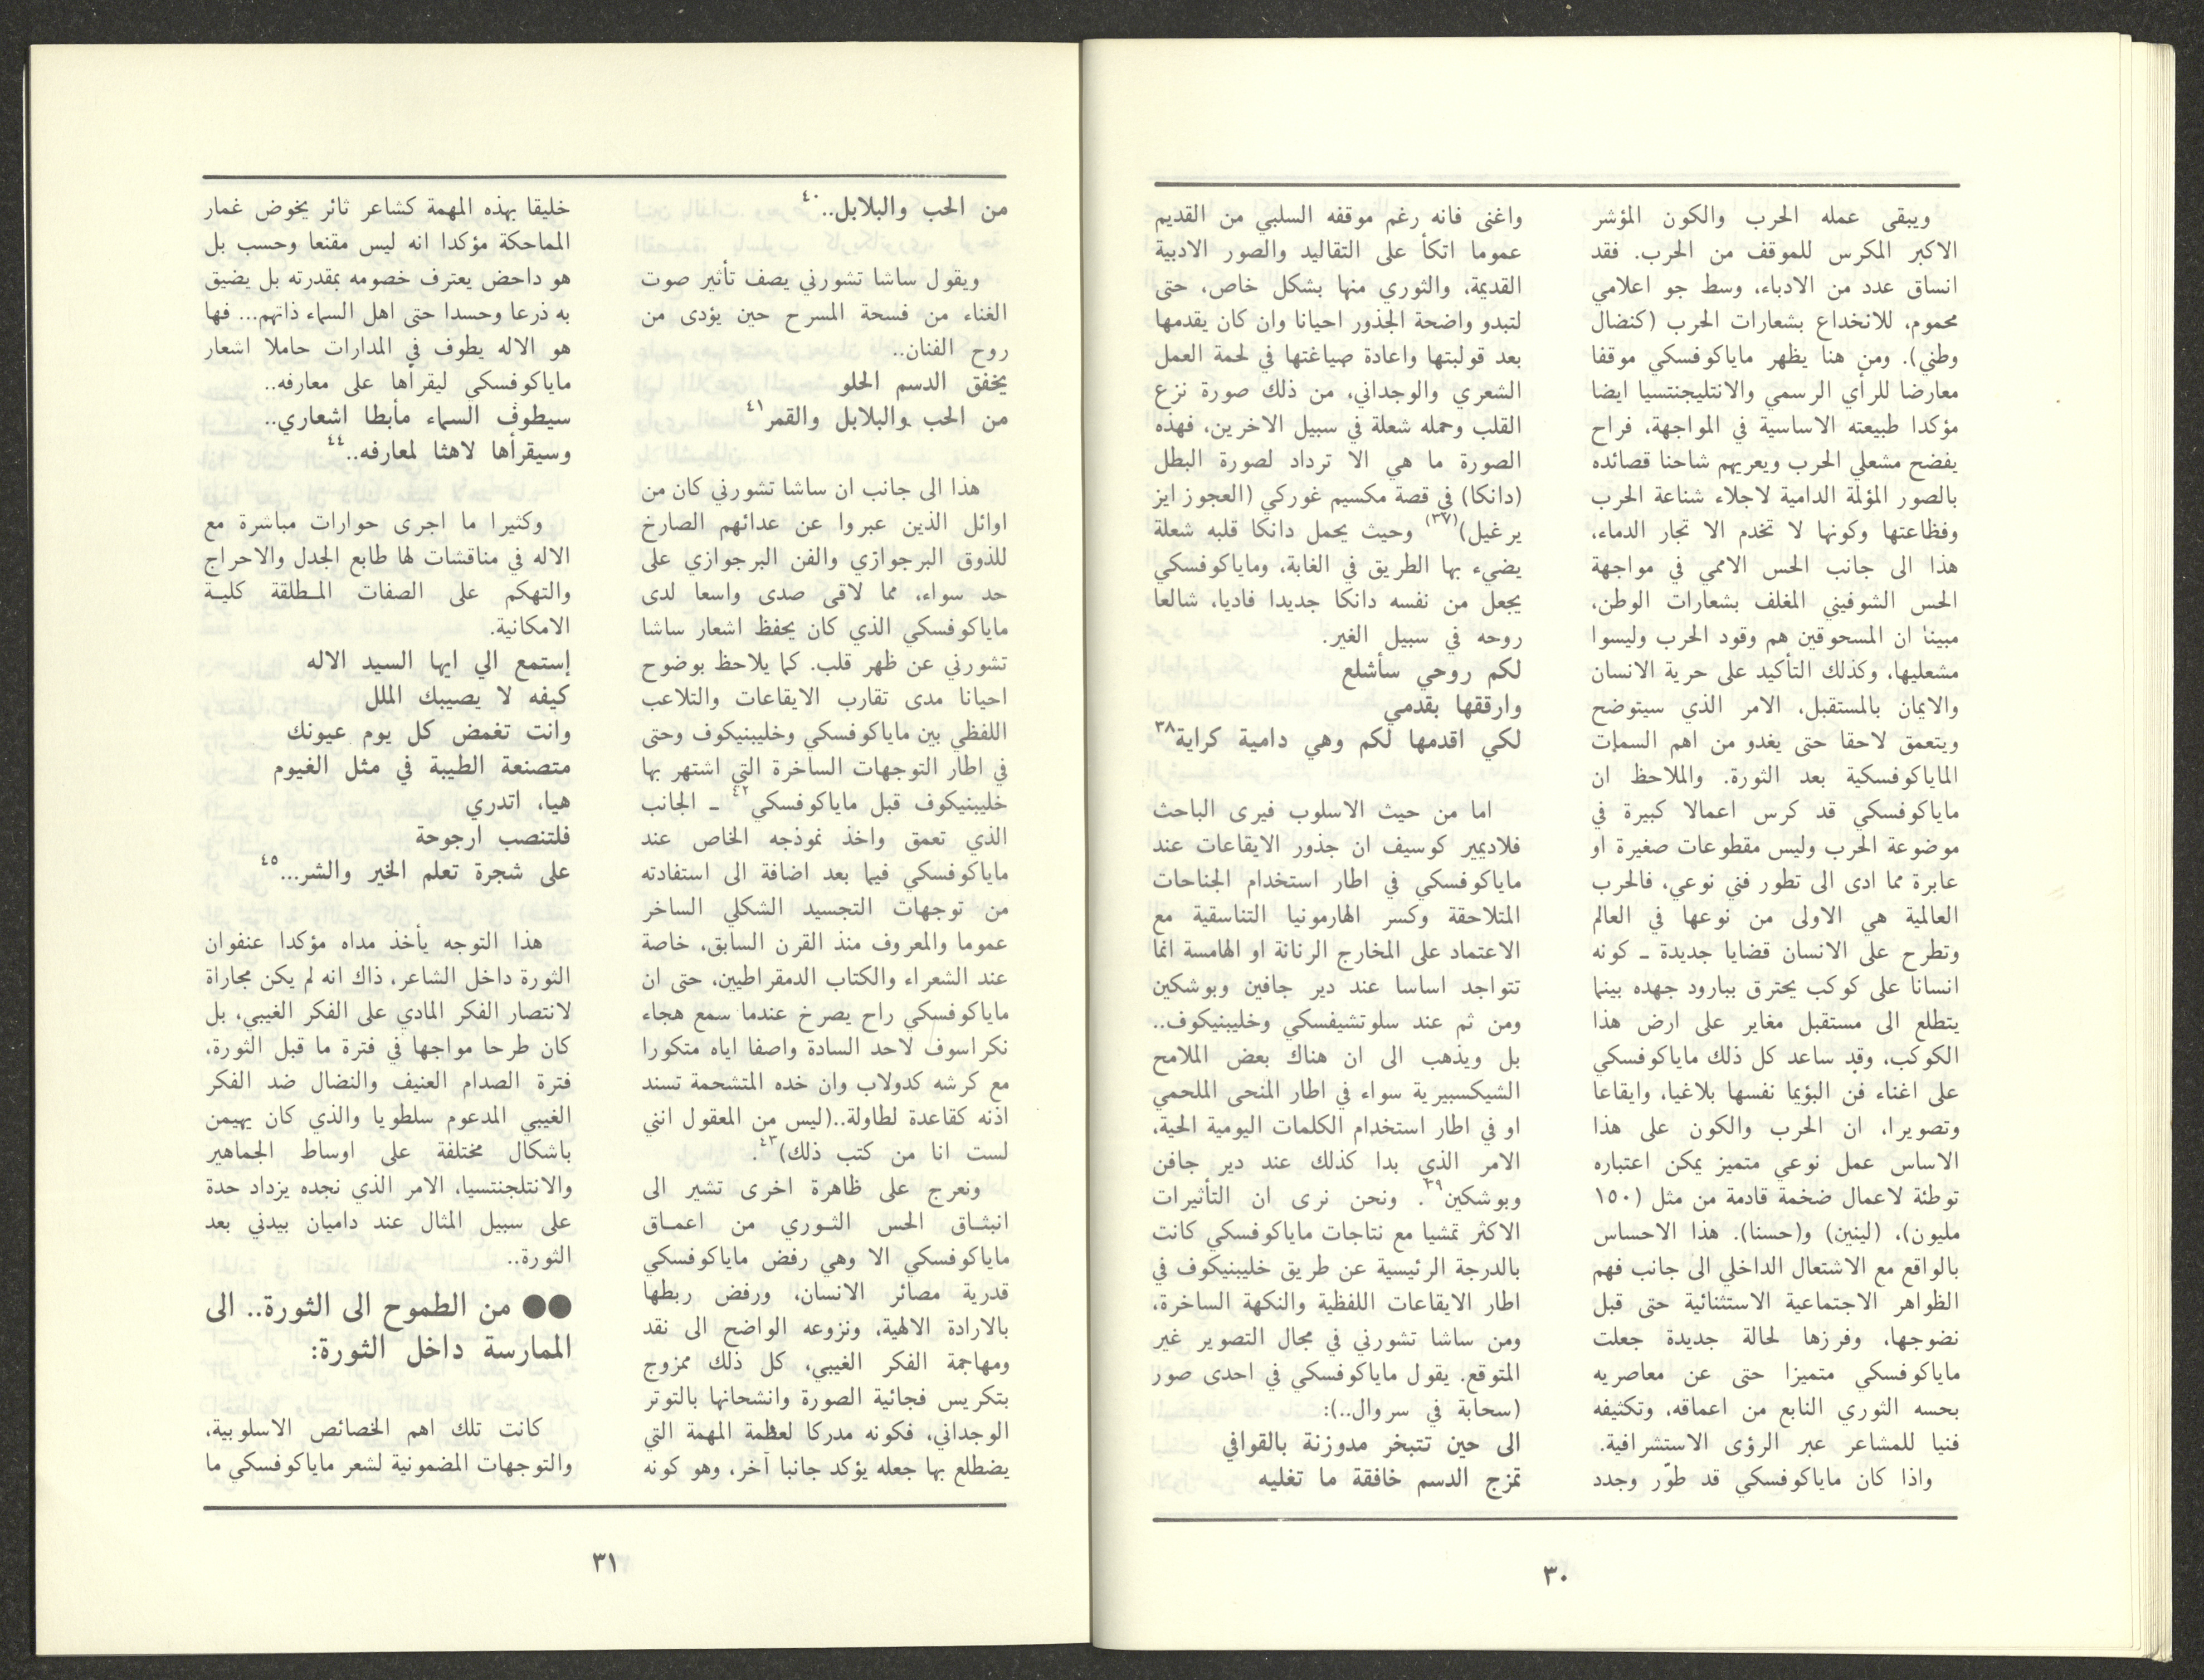 ويبقى عمله الحرب والكون المؤشر
الاكبر المكرس للموقف من الحرب. فقد
انساق عدد من الادباء، وسط جو اعلامي
محموم، للانخداع بشعارات الحرب (كنضال
وطني). ومن هنا يظهر ماياكوفسكي موقفا
معارضا للرأي الرسمي والانتليجنتسيا ايضا
مؤكدا طبيعته الاساسية في المواجهة، فراح
يفضح مشعلي الحرب ويعريهم شاحنا قصائده
بالصور المؤلمة الدامية لاجلاء شناعة الحرب
وفظاعتها وكونها لا تخدم الا تجار الدماء،
هذا الى جانب الحس الاممي في مواجهة
الحس الشوفيني المغلف بشعارات الوطن،
مبينا ان المسحوقين هم وقود الحرب وليسوا
مشعليها، وكذلك التأكيد على حرية الانسان
والايمان بالمستقبل، الامر الذي سيتوضح
ويتعمق لاحقا حتى يغدو من اهم السمات
الماياكوفسكية بعد الثورة. والملاحظ ان
ماياكوفسكي قد كرس اعمالا كبيرة في
موضوعة الحرب وليس مقطوعات صغيرة او
عابرة مما ادى الى تطور فني نوعي، فالحرب
العالمية هي الاولى من نوعها في العالم
وتطرح على الانسان قضايا جديدة ـ كونه
انسانا على كوكب يحترق ببارود جهده بينما
يتطلع الى مستقبل مغاير على ارض هذا
الكوكب، وقد ساعد كل ذلك ماياكوفسكي
على اغناء فن البؤيما نفسها بلاغيا، وايقاعا
وتصويرا، ان الحرب والكون على هذا
الاساس عمل نوعي متميز يمكن اعتباره
توطئة لاعمال ضخمة قادمة من مثل (١٥٠
مليون)، (لينين) و(حسنا). هذا الاحساس
بالواقع مع الاشتعال الداخلي الى جانب فهم
الظواهر الاجتماعية الاستثنائية حتى قبل
نضوجها، وفرزها لحالة جديدة جعلت
ماياكوفسكي متميزا حتى عن معاصريه
بحسه الثوري النابع من اعماقه، وتكثيفه
فنيا للمشاعر عبر الرؤى الاستشرافية.
واذا كان ماياكوفسكي قد طوّر وجدد
واغنى فانه رغم موقفه السلبي من القديم
عموما اتكأ على التقاليد والصور الادبية
القديمة، والثوري منها بشكل خاص، حتى
لتبدو واضحة الجذور احيانا وان كان يقدمها
بعد قولبتها واعادة صياغتها في لحمة العمل
الشعري والوجداني، من ذلك صورة نزع
القلب وحمله شعلة في سبيل الاخرين، فهذه
الصورة ما هي الا ترداد لصورة البطل
(دانكا) في قصة مكسيم غوركي (العجوز ايز
يرغيل)(٣٧) وحيث يحمل دانكا قلبه شعلة
يضيء بها الطريق في الغابة، وماياكوفسكي
يجعل من نفسه دانكا جديدا فاديا، شالعا
روحه في سبيل الغير.
لكم روحي سأشلع
وارققها بقدمي
لكي اقدمها لكم وهي دامية كراية٣٨
اما من حيث الاسلوب فيرى الباحث
فلاديمير كوسيف ان جذور الايقاعات عند
ماياكوفسكي في اطار استخدام الجناحات
المتلاحقة وكسر الهارمونيا التناسقية مع
الاعتماد على المخارج الرنانة او الهامسة انما
تتواجد اساسا عند دير جافين وبوشكين
ومن ثم عند سلوتشيفسكي وخليبنيكوف..
بل ويذهب الى ان هناك بعض الملامح
الشيكسبيرية سواء في اطار المنحى الملحمي
او في اطار استخدام الكلمات اليومية الحية،
الامر الذي بدا كذلك عند دير جافن
وبوشكين٣٩. ونحن نرى ان التأثيرات
الاكثر تمشيا مع نتاجات ماياكوفسكي كانت
بالدرجة الرئيسية عن طريق خليبنيكوف في
اطار الايقاعات اللفظية والنكهة الساخرة،
ومن ساشا تشورني في مجال التصوير غير
المتوقع. يقول ماياكوفسكي في احدى صور
(سحابة في سروال..):
الى حين تتبخر مدوزنة بالقوافي
تمزج الدسم خافقة ما تغليه
٣٠
من الحب والبلابل..٤٠
ويقول ساشا تشورني يصف تأثير صوت
الغناء من فسحة المسرح حين يؤدى من
روح الفنان..
يخفق الدسم الحلو
من الحب والبلابل والقمر٤١
هذا الى جانب ان ساشا تشورني كان من
اوائل الذين عبروا عن عدائهم الصارخ
للذوق البرجوازي والفن البرجوازي على
حد سواء، مما لاقى صدى واسعا لدى
ماياكوفسكي الذي كان يحفظ اشعار ساشا
تشورني عن ظهر قلب. كما يلاحظ بوضوح
احيانا مدى تقارب الايقاعات والتلاعب
اللفظي بين ماياكوفسكي وخليبنيكوف وحتى
في اطار التوجهات الساخرة التي اشتهر بها
خليبنيكوف قبل ماياكوفسكي٤٢ ـ الجانب
الذي تعمق واخذ نموذجه الخاص عند
ماياكوفسكي فيما بعد اضافة الى استفادته
من توجهات التجسيد الشكلي الساخر
عموما والمعروف منذ القرن السابق، خاصة
عند الشعراء والكتاب الدمقراطيين، حتى ان
ماياكوفسكي راح يصرخ عندما سمع هجاء
نكراسوف لاحد السادة واصفا اياه متكورا
مع كرشه كدولاب وان خده المتشحمة تسند
اذنه كقاعدة لطاولة..(ليس من المعقول انني
لست انا من كتب ذلك)٤٣.
ونعرج على ظاهرة اخرى تشير الى
انبثاق الحس الثوري من اعماق
ماياكوفسكي الا وهي رفض ماياكوفسكي
قدرية مصائر الانسان، ورفض ربطها
بالارادة الالهية، ونزوعه الواضح الى نقد
ومهاجمة الفكر الغيبي، كل ذلك ممزوج
بتكريس فجائية الصورة وانشحانها بالتوتر
الوجداني، فكونه مدركا لعظمة المهمة التي
يضطلع بها جعله يؤكد جانبا آخر، وهو كونه
خليقا بهذه المهمة كشاعر ثائر يخوض غمار
المماحكة مؤكدا انه ليس مقنعا وحسب بل
هو داحض يعترف خصومه بمقدرته بل يضيق
به ذرعا وحسدا حتى اهل السماء ذاتهم... فها
هو الاله يطوف في المدارات حاملا اشعار
ماياكوفسكي ليقرأها على معارفه..
سيطوف السماء مأبطا اشعاري..
وسيقرأها لاهثا لمعارفه..٤٤
وكثيرا ما اجرى حوارات مباشرة مع
الاله في مناقشات لها طابع الجدل والاحراج
والتهكم على الصفات المطلقة كلية
الامكانية.
إستمع الي ايها السيد الاله
كيفه لا يصيبك الملل
وانت تغمض كل يوم عيونك
متصنعة الطيبة في مثل الغيوم
هيا، اتدري
فلتنصب ارجوحة
على شجرة تعلم الخير والشر...٤٥
هذا التوجه يأخذ مداه مؤكدا عنفوان
الثورة داخل الشاعر، ذاك انه لم يكن مجاراة
لانتصار الفكر المادي على الفكر الغيبي، بل
كان طرحا مواجها في فترة ما قبل الثورة،
فترة الصدام العنيف والنضال ضد الفكر
الغيبي المدعوم سلطويا والذي كان يهيمن
باشكال مختلفة على اوساط الجماهير
والانتلجنتسيا، الامر الذي نجده يزداد حدة
على سبيل المثال عند داميان بيدني بعد
الثورة..
●● من الطموح الى الثورة.. الى
الممارسة داخل الثورة:
كانت تلك اهم الخصائص الاسلوبية،
والتوجهات المضمونية لشعر ماياكوفسكي ما
٣١